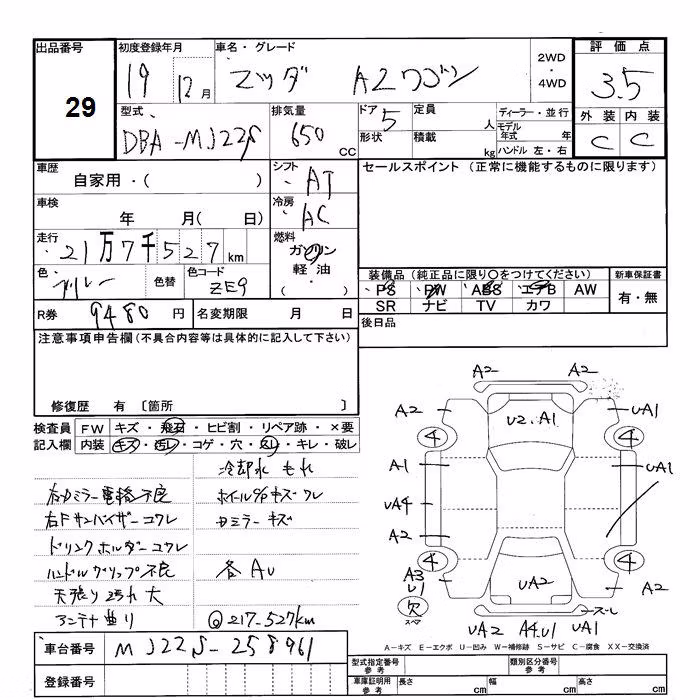 出品番号 29
初度登録年月 19 12月
車名・グレード マツダ AZワゴン
2WD・4WD
評価点 3.5
外装 C 内装 C
型式 DBA-MJ22S
排気量 650 CC
ドア 5 形状
定員 人
積載 kg
ディーラー・並行
モデル年式 年
ハンドル 左・右
車歴 自家用・( )
シフト AT
セールスポイント (正常に機能するものに限ります)
車検 年 月( 日)
冷房 AC
走行 21万7千527km
燃料 ガソリン 軽油・( )
色 ブルー 色替
色コード ZE9
装備品(純正品に限り○をつけてください)
PS PW ABS エアB AW
SR ナビ TV カワ
新車保証書 有・無
R券 9480円
名変期限 月 日
後日品
注意事項申告欄(不具合内容等は具体的に記入して下さい)
修復歴 有 〔箇所 〕
検査員 FW キズ・飛石・ヒビ割・リペア跡・×要
記入欄 内装 キズ・汚レ・コゲ・穴・スレ・キレ・破レ
冷却水 もれ
右ミラー電格不良
ホイールP/Pキズ ワレ
右Fサンバイザー コワレ
ミラー キズ
ドリンクホルダー コワレ
ハンドルグリップ不良
各AU
天張り汚れ大
アンテナ曲り
217-527km
A2 A2
A2 U2.A1 UA1
4 4
A1 UA1
UA4
A2
4 4
A3 U1 UA2 A2
欠 スペア
スレ
UA2 A4.U1 UA1
A-キズ E-エクボ U-凹み W-補修跡 S-サビ C-腐食 XX-交換済
車台番号 MJ22S-258961
登録番号
型式指定番号 参考
類別区分番号 参考
車庫証明用 参考 長さ cm 幅 cm 高さ cm